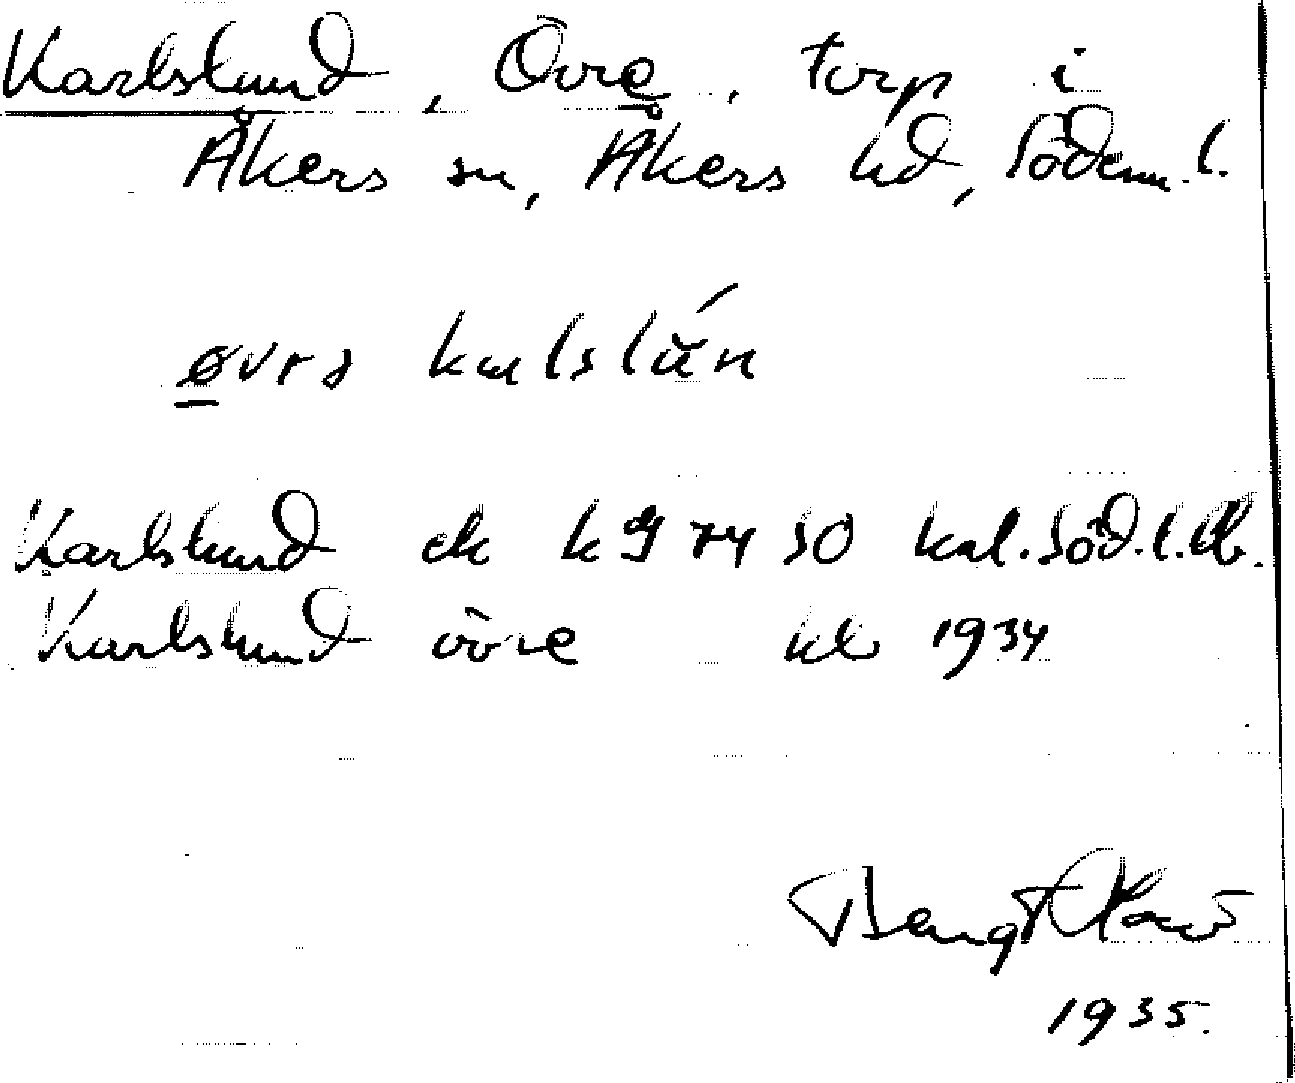 Karlslund, Övre, torp i
Åkers sn, Åkers hd, Söderm. l.
øvrə kɑlslún
Karlslund ek k 9 74 SO kal. Söd. l.
Karlslund övre kb 1934
Bengt
1935.